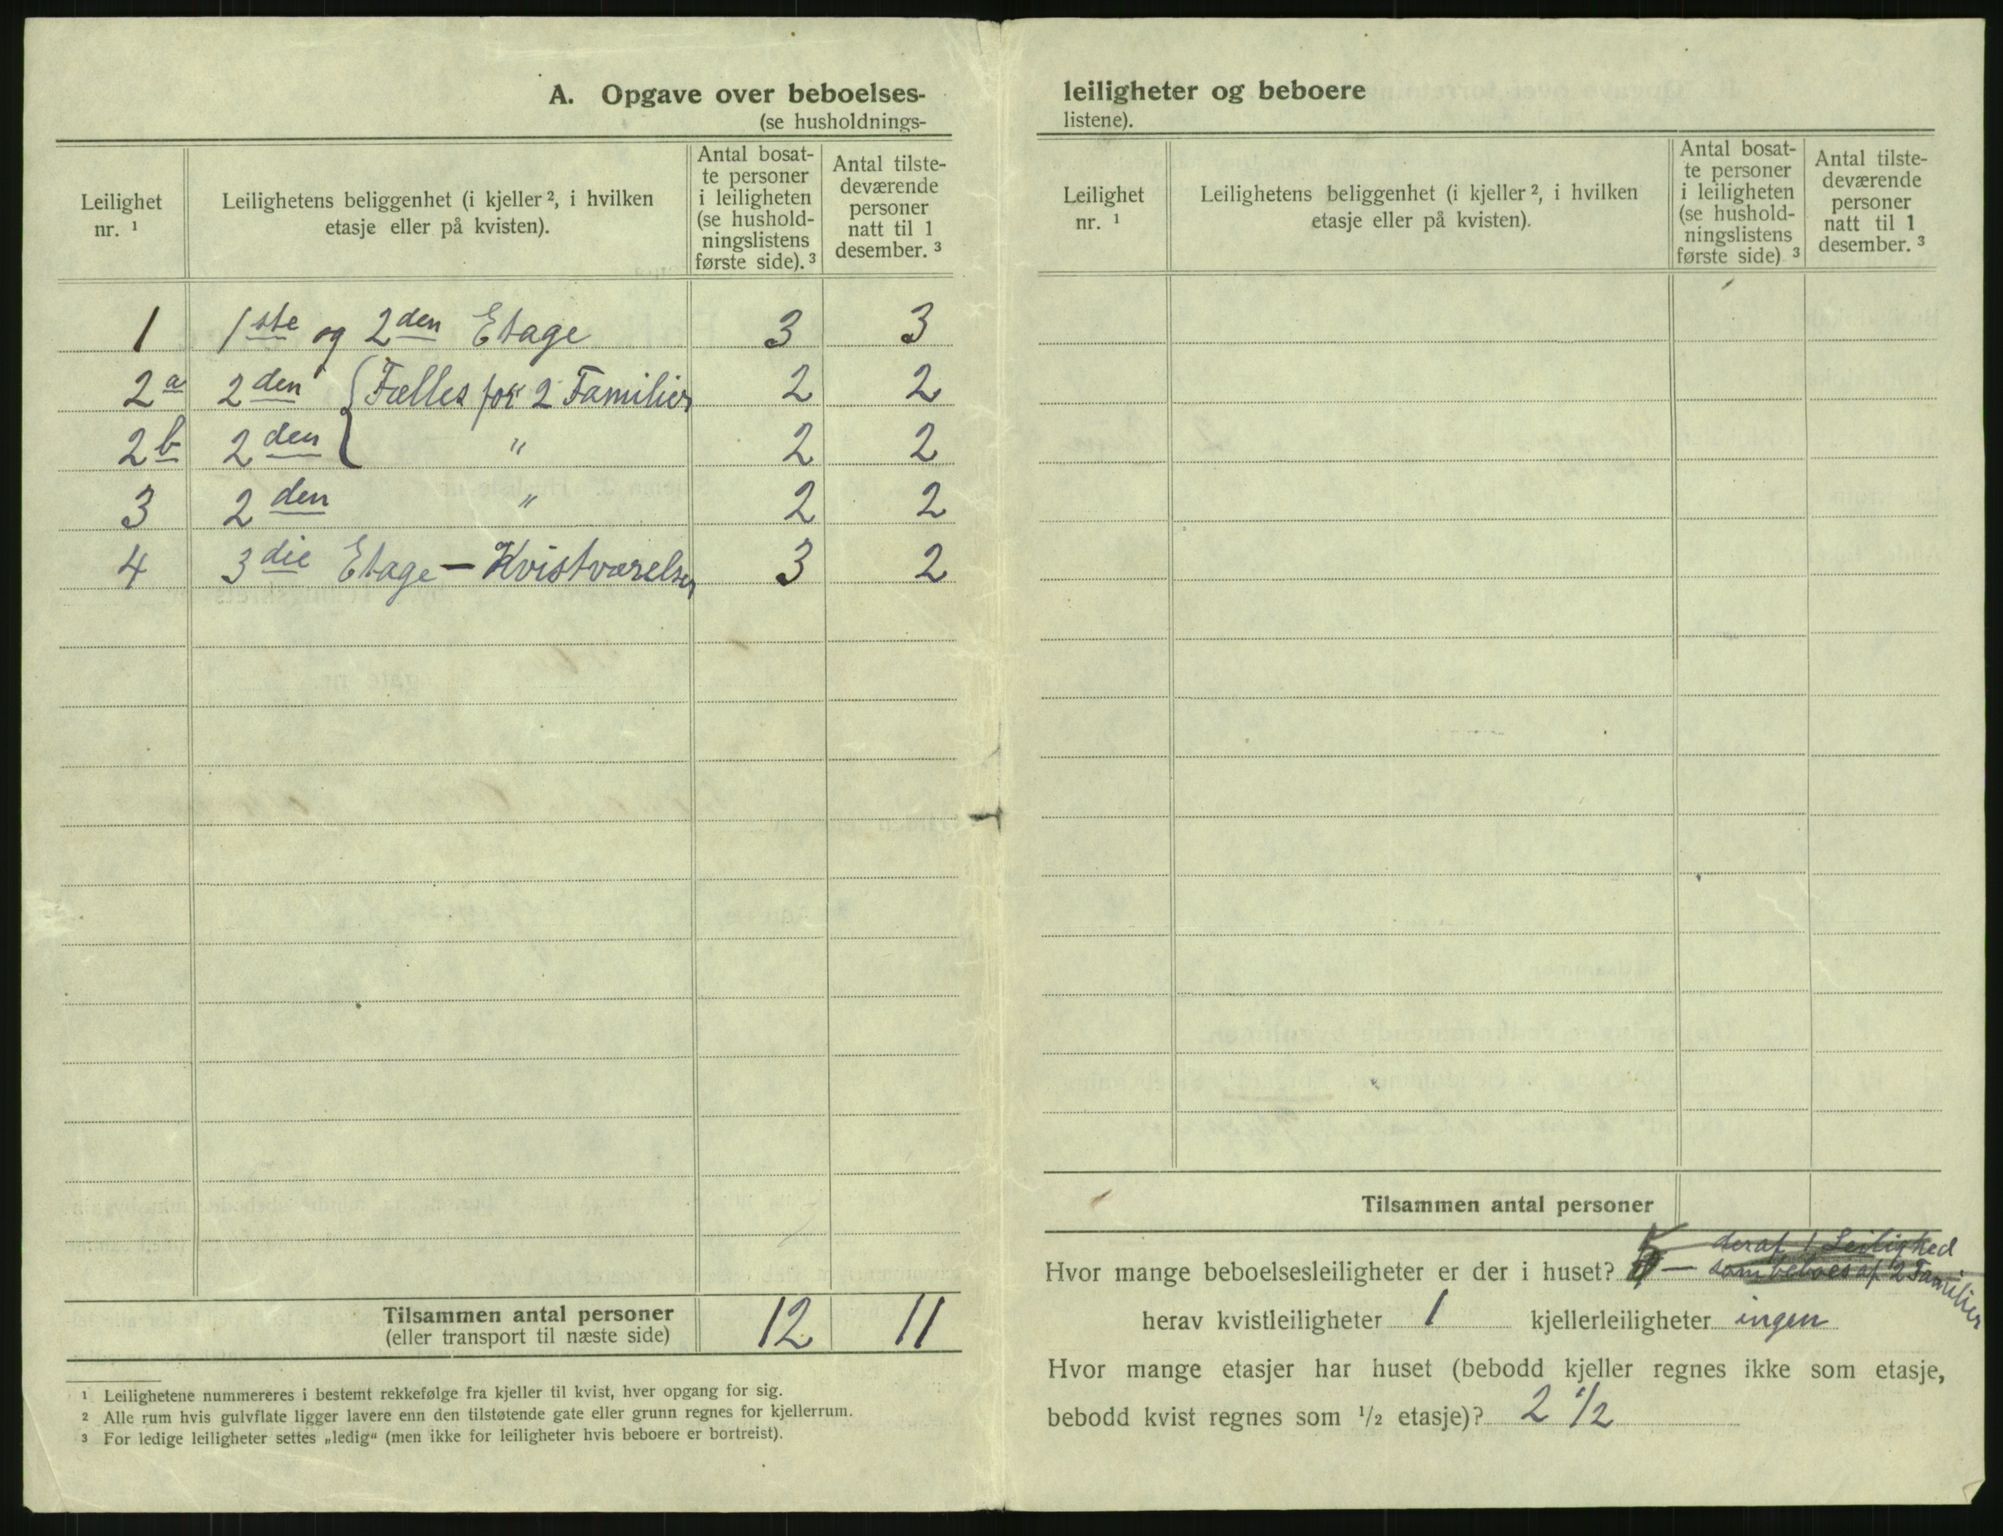 A. Opgave over beboelses-
(se husholdnings-
Leilighet nr. ¹
Leilighetens beliggenhet (i kjeller ², i hvilken etasje eller på kvisten).
Antal bosat-
te personer
i leiligheten
(se hushold-
ningslistens
første side). ³
Antal tilste-
deværende
personer
natt til 1
desember. ³
1 1ste og 2den Etage 3 3
2a 2den { Fælles for 2 Familier 2 2
2b 2den { " 2 2
3 2den " 2 2
4 3die Etage — Kvistværelser 3 2
Tilsammen antal personer 12 11
(eller transport til næste side)
¹ Leilighetene nummereres i bestemt rekkefølge fra kjeller til kvist, hver opgang for sig.
² Alle rum hvis gulvflate ligger lavere enn den tilstøtende gate eller grunn regnes for kjellerrum.
³ For ledige leiligheter settes „ledig“ (men ikke for leiligheter hvis beboere er bortreist).
leiligheter og beboere
listene).
Leilighet nr. ¹
Leilighetens beliggenhet (i kjeller ², i hvilken etasje eller på kvisten).
Antal bosat-
te personer
i leiligheten
(se hushold-
ningslistens
første side) ³
Antal tilste-
deværende
personer
natt til 1
desember. ³
Tilsammen antal personer
deraf 1 Leilighed
Hvor mange beboelsesleiligheter er der i huset? — som beboes af 2 Familier
herav kvistleiligheter 1 kjellerleiligheter ingen
Hvor mange etasjer har huset (bebodd kjeller regnes ikke som etasje,
bebodd kvist regnes som ½ etasje)? 2 1/2